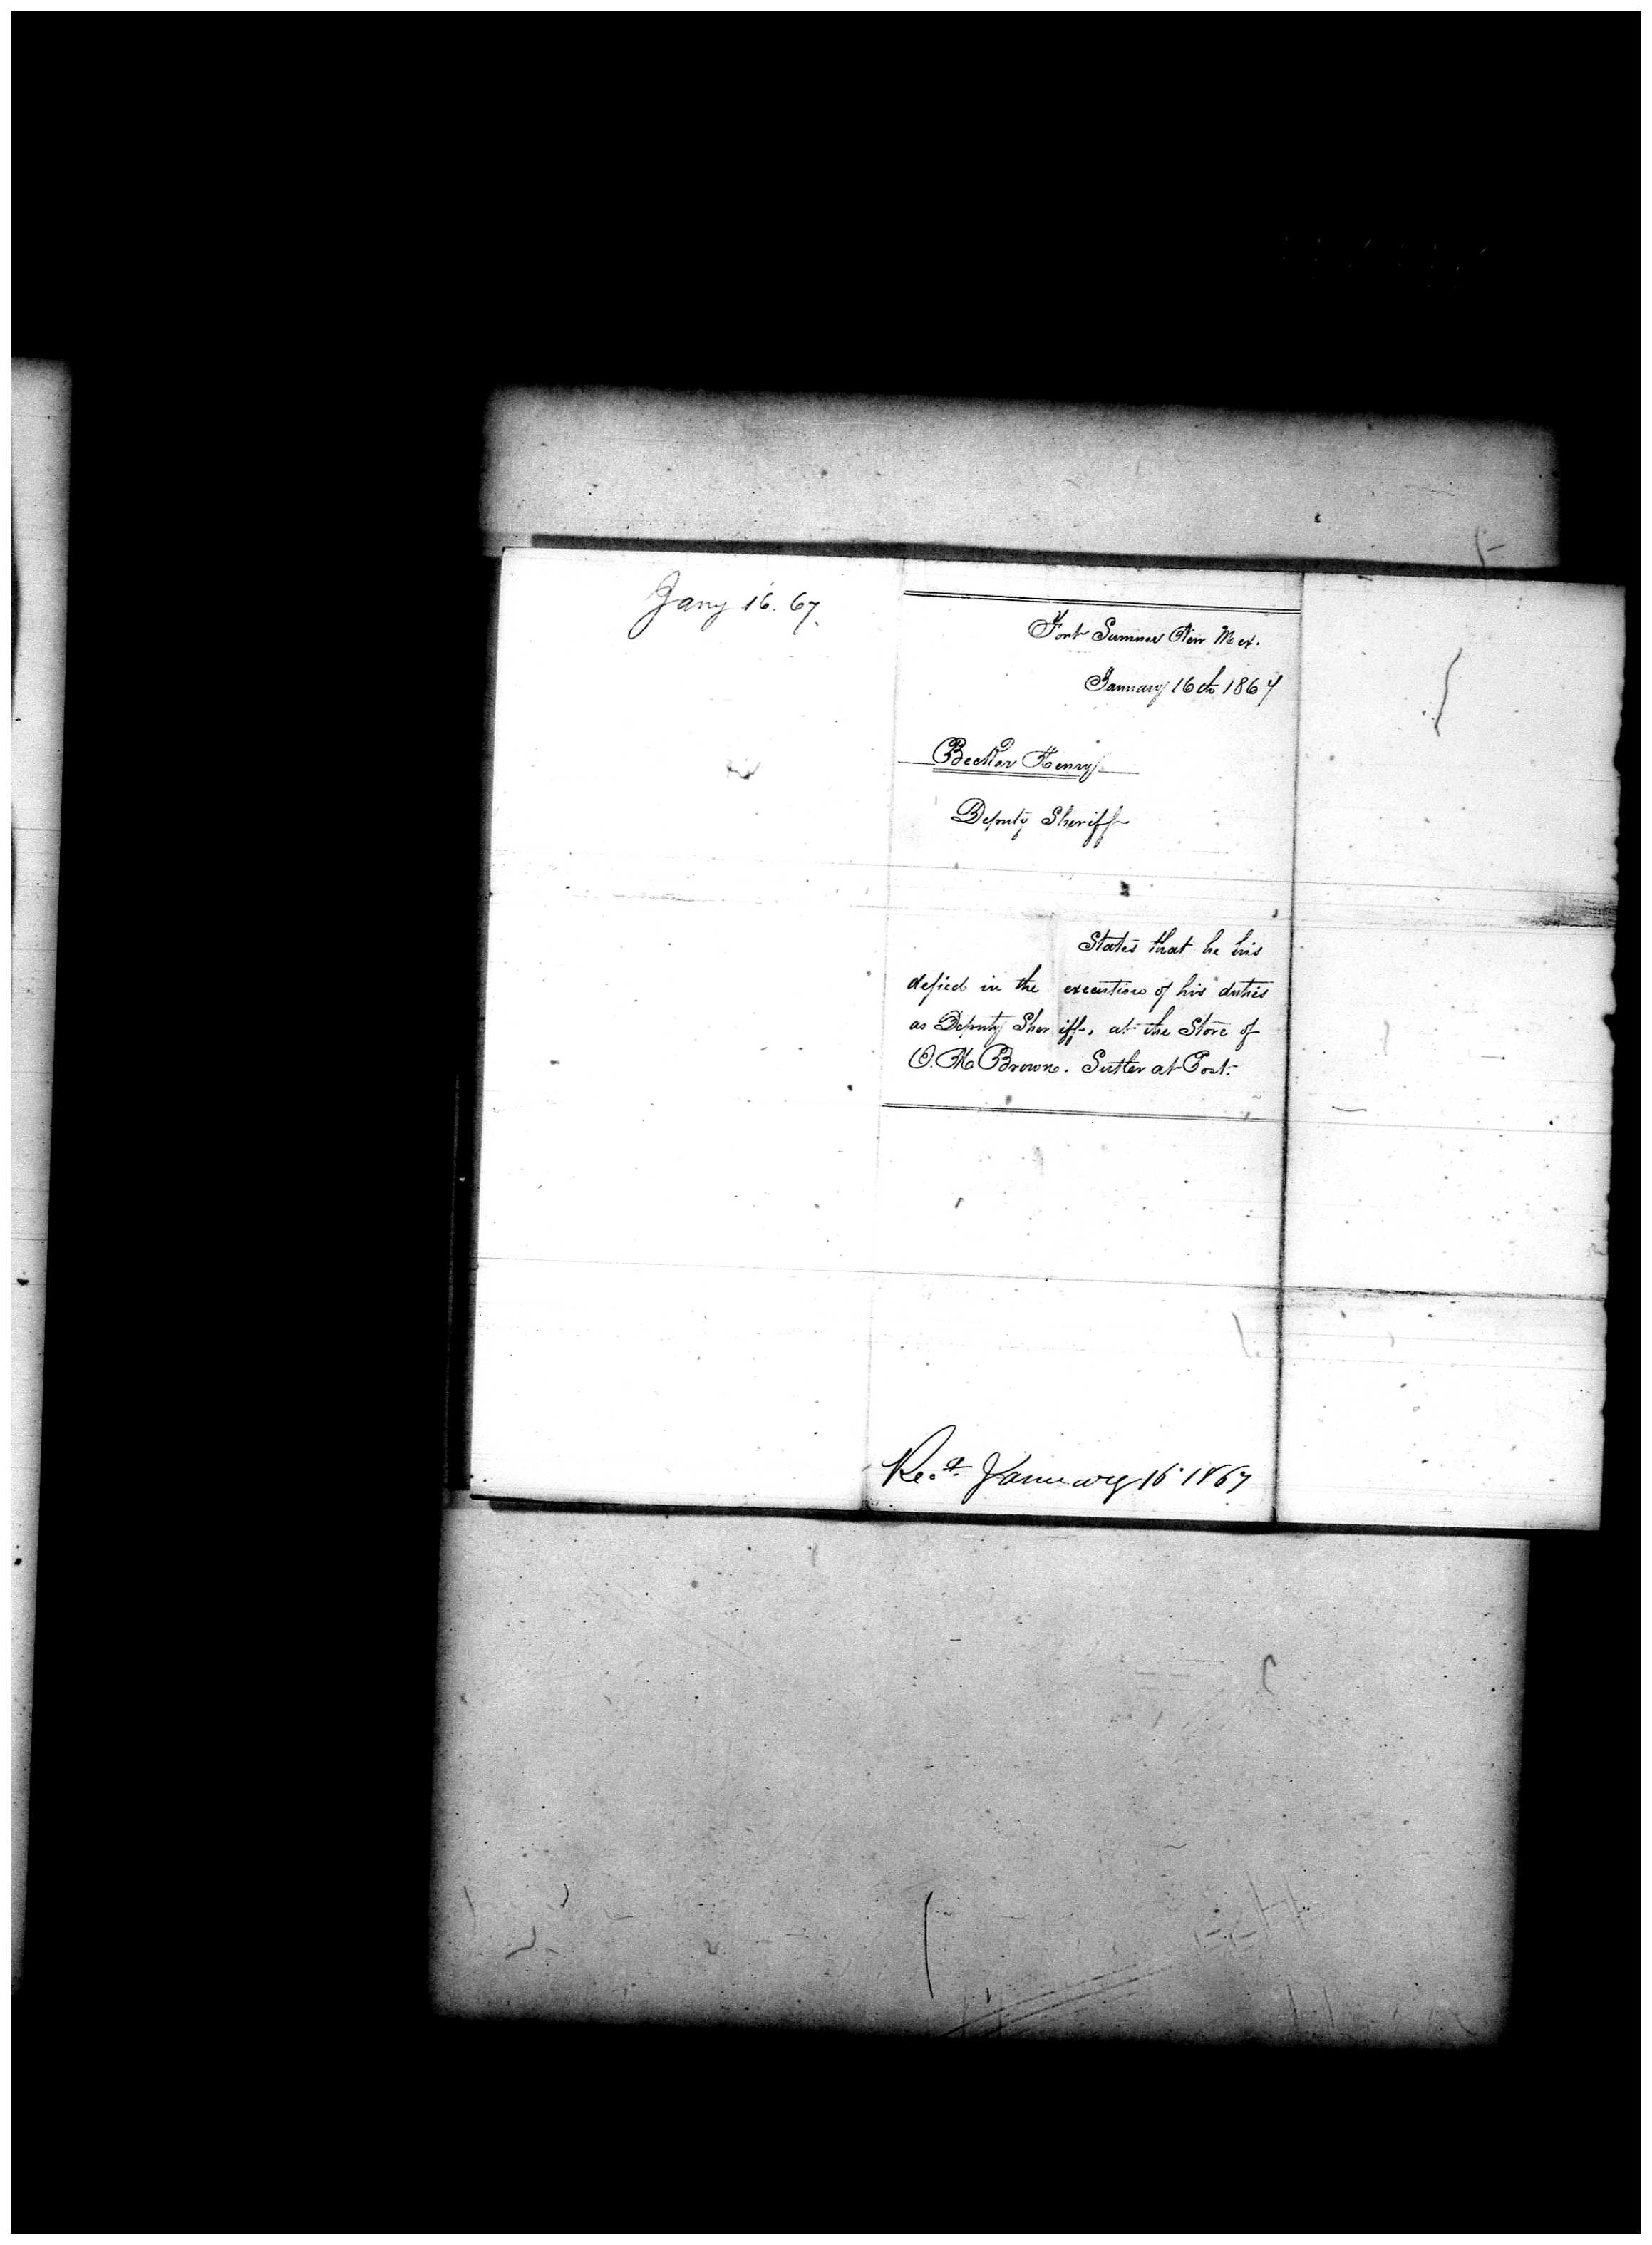 Jany 16. 67.
Fort Sumner New Mex.
January 16th 1867
Becker Henry
Deputy Sheriff
States that he his
defied in the execution of his duties
as Deputy Sheriff, at the Store of
O. M Brown. Sutler at Post.
Rec.d January 16 1867